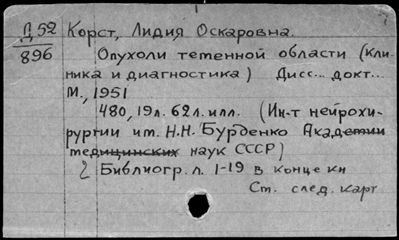 Д 52 Корст, Лидия Оскаровна.
896 Опухоли теменной области (кли-
ника и диагностика) Дисс... докт...
М., 1951
480, 19 л. 62 л. илл. (Ин-т нейрохи-
рургии им. Н.Н. Бурденко Академии
медицинских наук СССР)
Библиогр. л. 1-19 в конце кн
Ст. след. карт